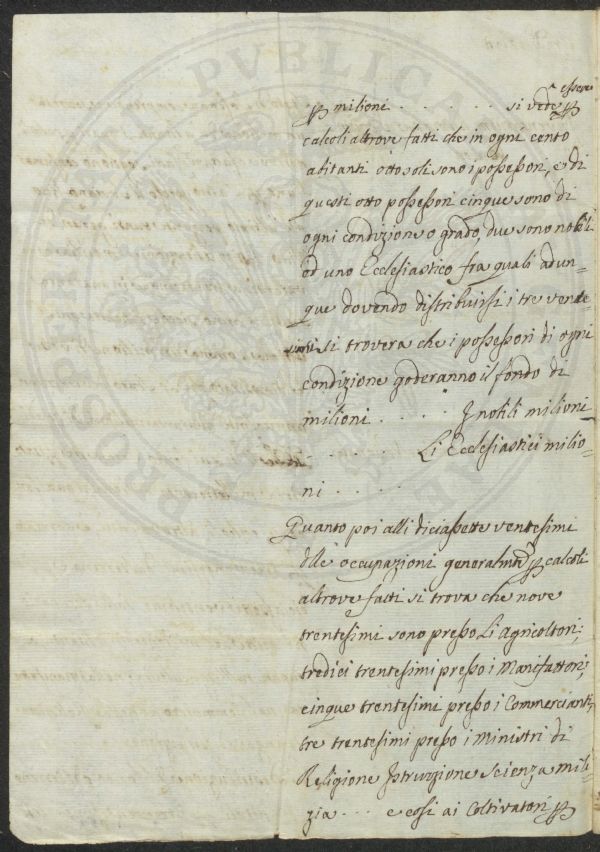 essere
ꝑ milioni . . . . . . si vede ꝑ
calcoli altrove fatti che in ogni cento
abitanti otto soli sono i possessori, e di
questi otto possessori cinque sono di
ogni condizione o grado, due sono nobili
ed uno Ecclesiastico fra quali adun-
que dovendo distribuirsi i tre vente-
simi si trovera che i possessori di ogni
condizione goderanno il fondo di
milioni . . . . . I nobili milioni
. . . . . . Li Ecclesiastici milio-
ni . . . .
Quanto poi alli diciassette ventesimi
dlle occupazioni generalmte ꝑ calcoli
altrove fatti si trova che nove
trentesimi sono presso Li Agricoltori;
tredici trentesimi presso i Manifattori;
cinque trentesimi presso i Commercianti,
tre trentesimi presso i Ministri di
Religione Istruzzione Scienza mili
zia . . . e così ai Coltivatori ꝑ
PROSPERITATI PVBLICAE